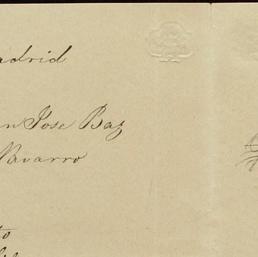 adrid
n Jose Baz
Navarro
to